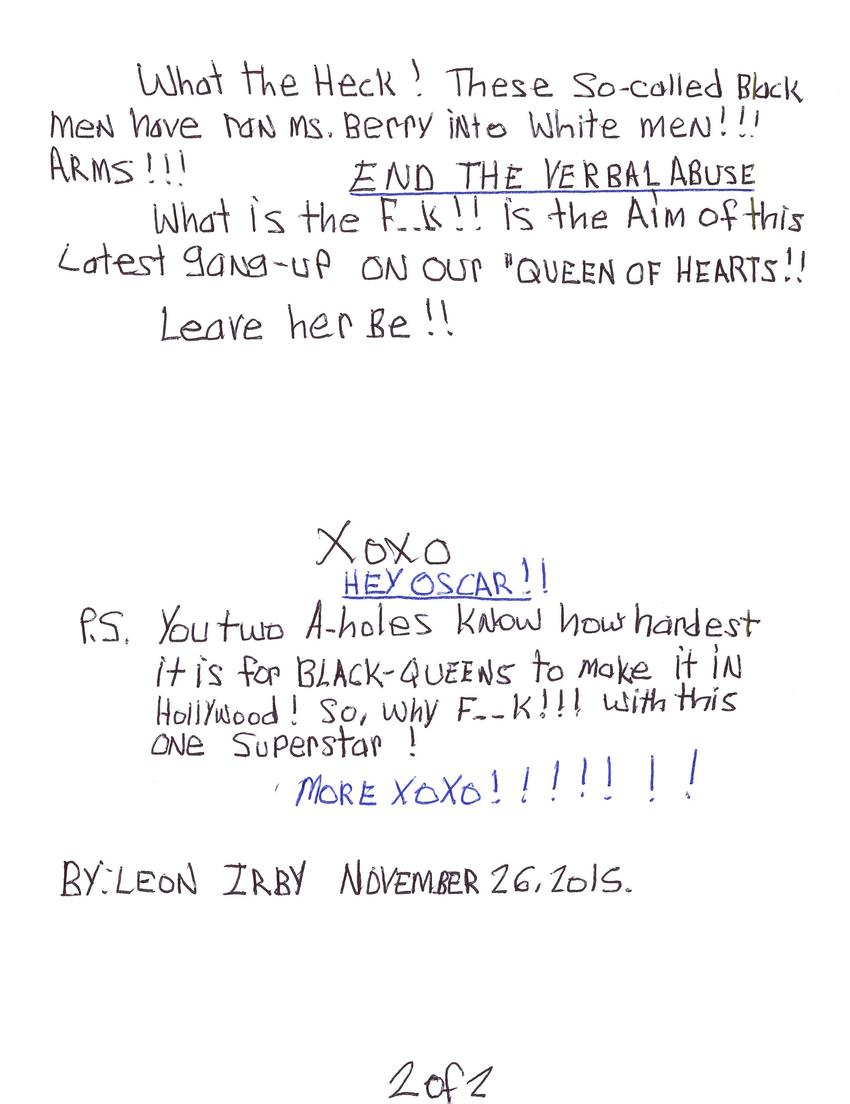 What the Heck! These So-called Black
men have ran ms. Berry into White men!!!
ARMS!!!
END THE VERBAL ABUSE
What is the F--k!! is the Aim of this
Latest gang-up ON our "QUEEN OF HEARTS!!
Leave her Be!!
XOXO
HEY OSCAR!!
P.S. You two A-holes KNOW how hardest
it is for BLACK-QUEENS to make it iN
Hollywood! So, why F--K!!! with this
ONE Superstar!
MORE XOXO!!!!!!!
BY:LEON IRBY NOVEMBER 26, 2015.
2 of 2